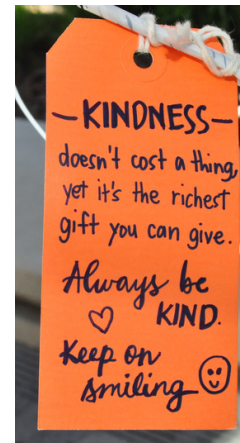 —KINDNESS—
doesn't cost a thing,
yet it's the richest
gift you can give.
Always be
KIND.
Keep on
smiling